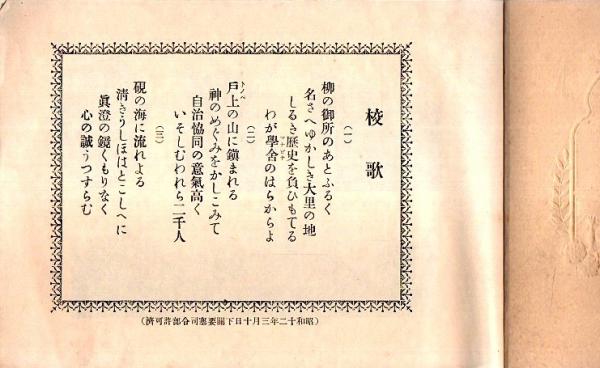 校歌
(一)
柳の御所のあとふるく
名さへゆかしき大里の地
しるき歴史を負ひもてる
わが學舍のはらからよ
マナビヤ
(二)
戸上の山に鎭まれる
トノヘ
神のめぐみをかしこみて
自治協同の意氣高く
いそしむわれら二千人
(三)
硯の海に流れよる
淸きうしほはとこしへに
眞澄の鏡くもりなく
心の誠うつすらむ
(昭和十二年三月十日下關要塞司令部許可濟)